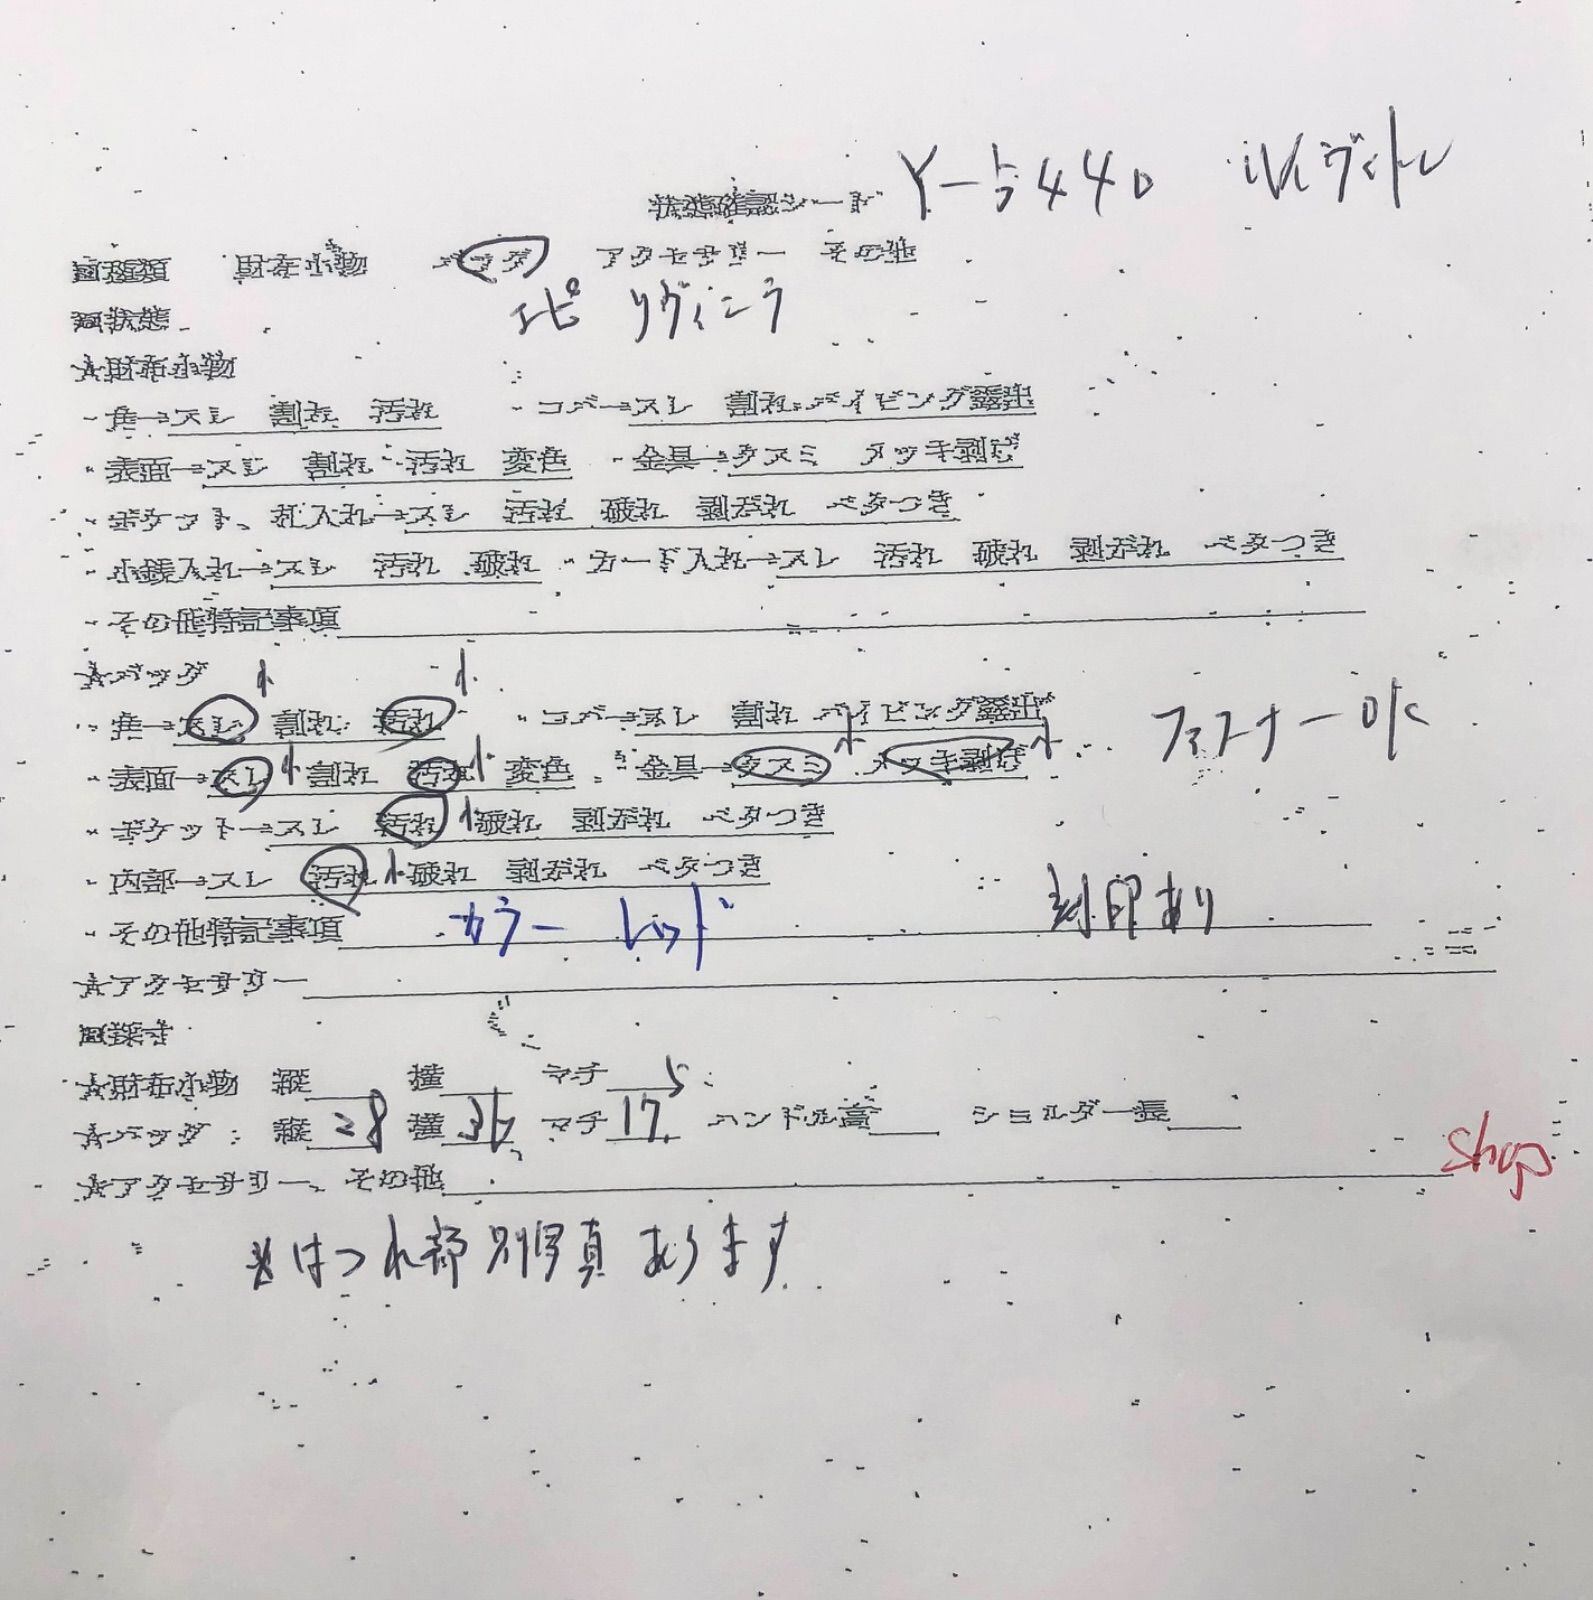 状態確認シート Y-5440 ルイヴィトン
■種類 財布小物 バッグ アクセサリー その他
エピ リヴィエラ
■状態
☆財布小物
・角→スレ 割れ 汚れ ・コバ→スレ 割れ パイピング露出
・表面→スレ 割れ 汚れ 変色 ・金具→クスミ メッキ剥げ
・ポケット、札入れ→スレ 汚れ 破れ 剥がれ ベタつき
・小銭入れ→スレ 汚れ 破れ ・カード入れ→スレ 汚れ 破れ 剥がれ ベタつき
・その他特記事項
☆バッグ 小 小
・角→スレ 割れ 汚れ ・コバ→スレ 割れ パイピング露出 ファスナーOK
・表面→スレ 小 割れ 汚れ 小 変色 ・金具→クスミ 小 メッキ剥げ 小
・ポケット→スレ 汚れ 小 破れ 剥がれ ベタつき
・内部→スレ 汚れ 小 破れ 剥がれ ベタつき
・その他特記事項 カラー レッド 刻印あり
☆アクセサリー
■採寸
☆財布小物 縦 横 マチ
☆バッグ: 縦 28 横 36 マチ 17.5 ハンドル高 ショルダー長
☆アクセサリー、その他 shop
※はつれ部別写真あります